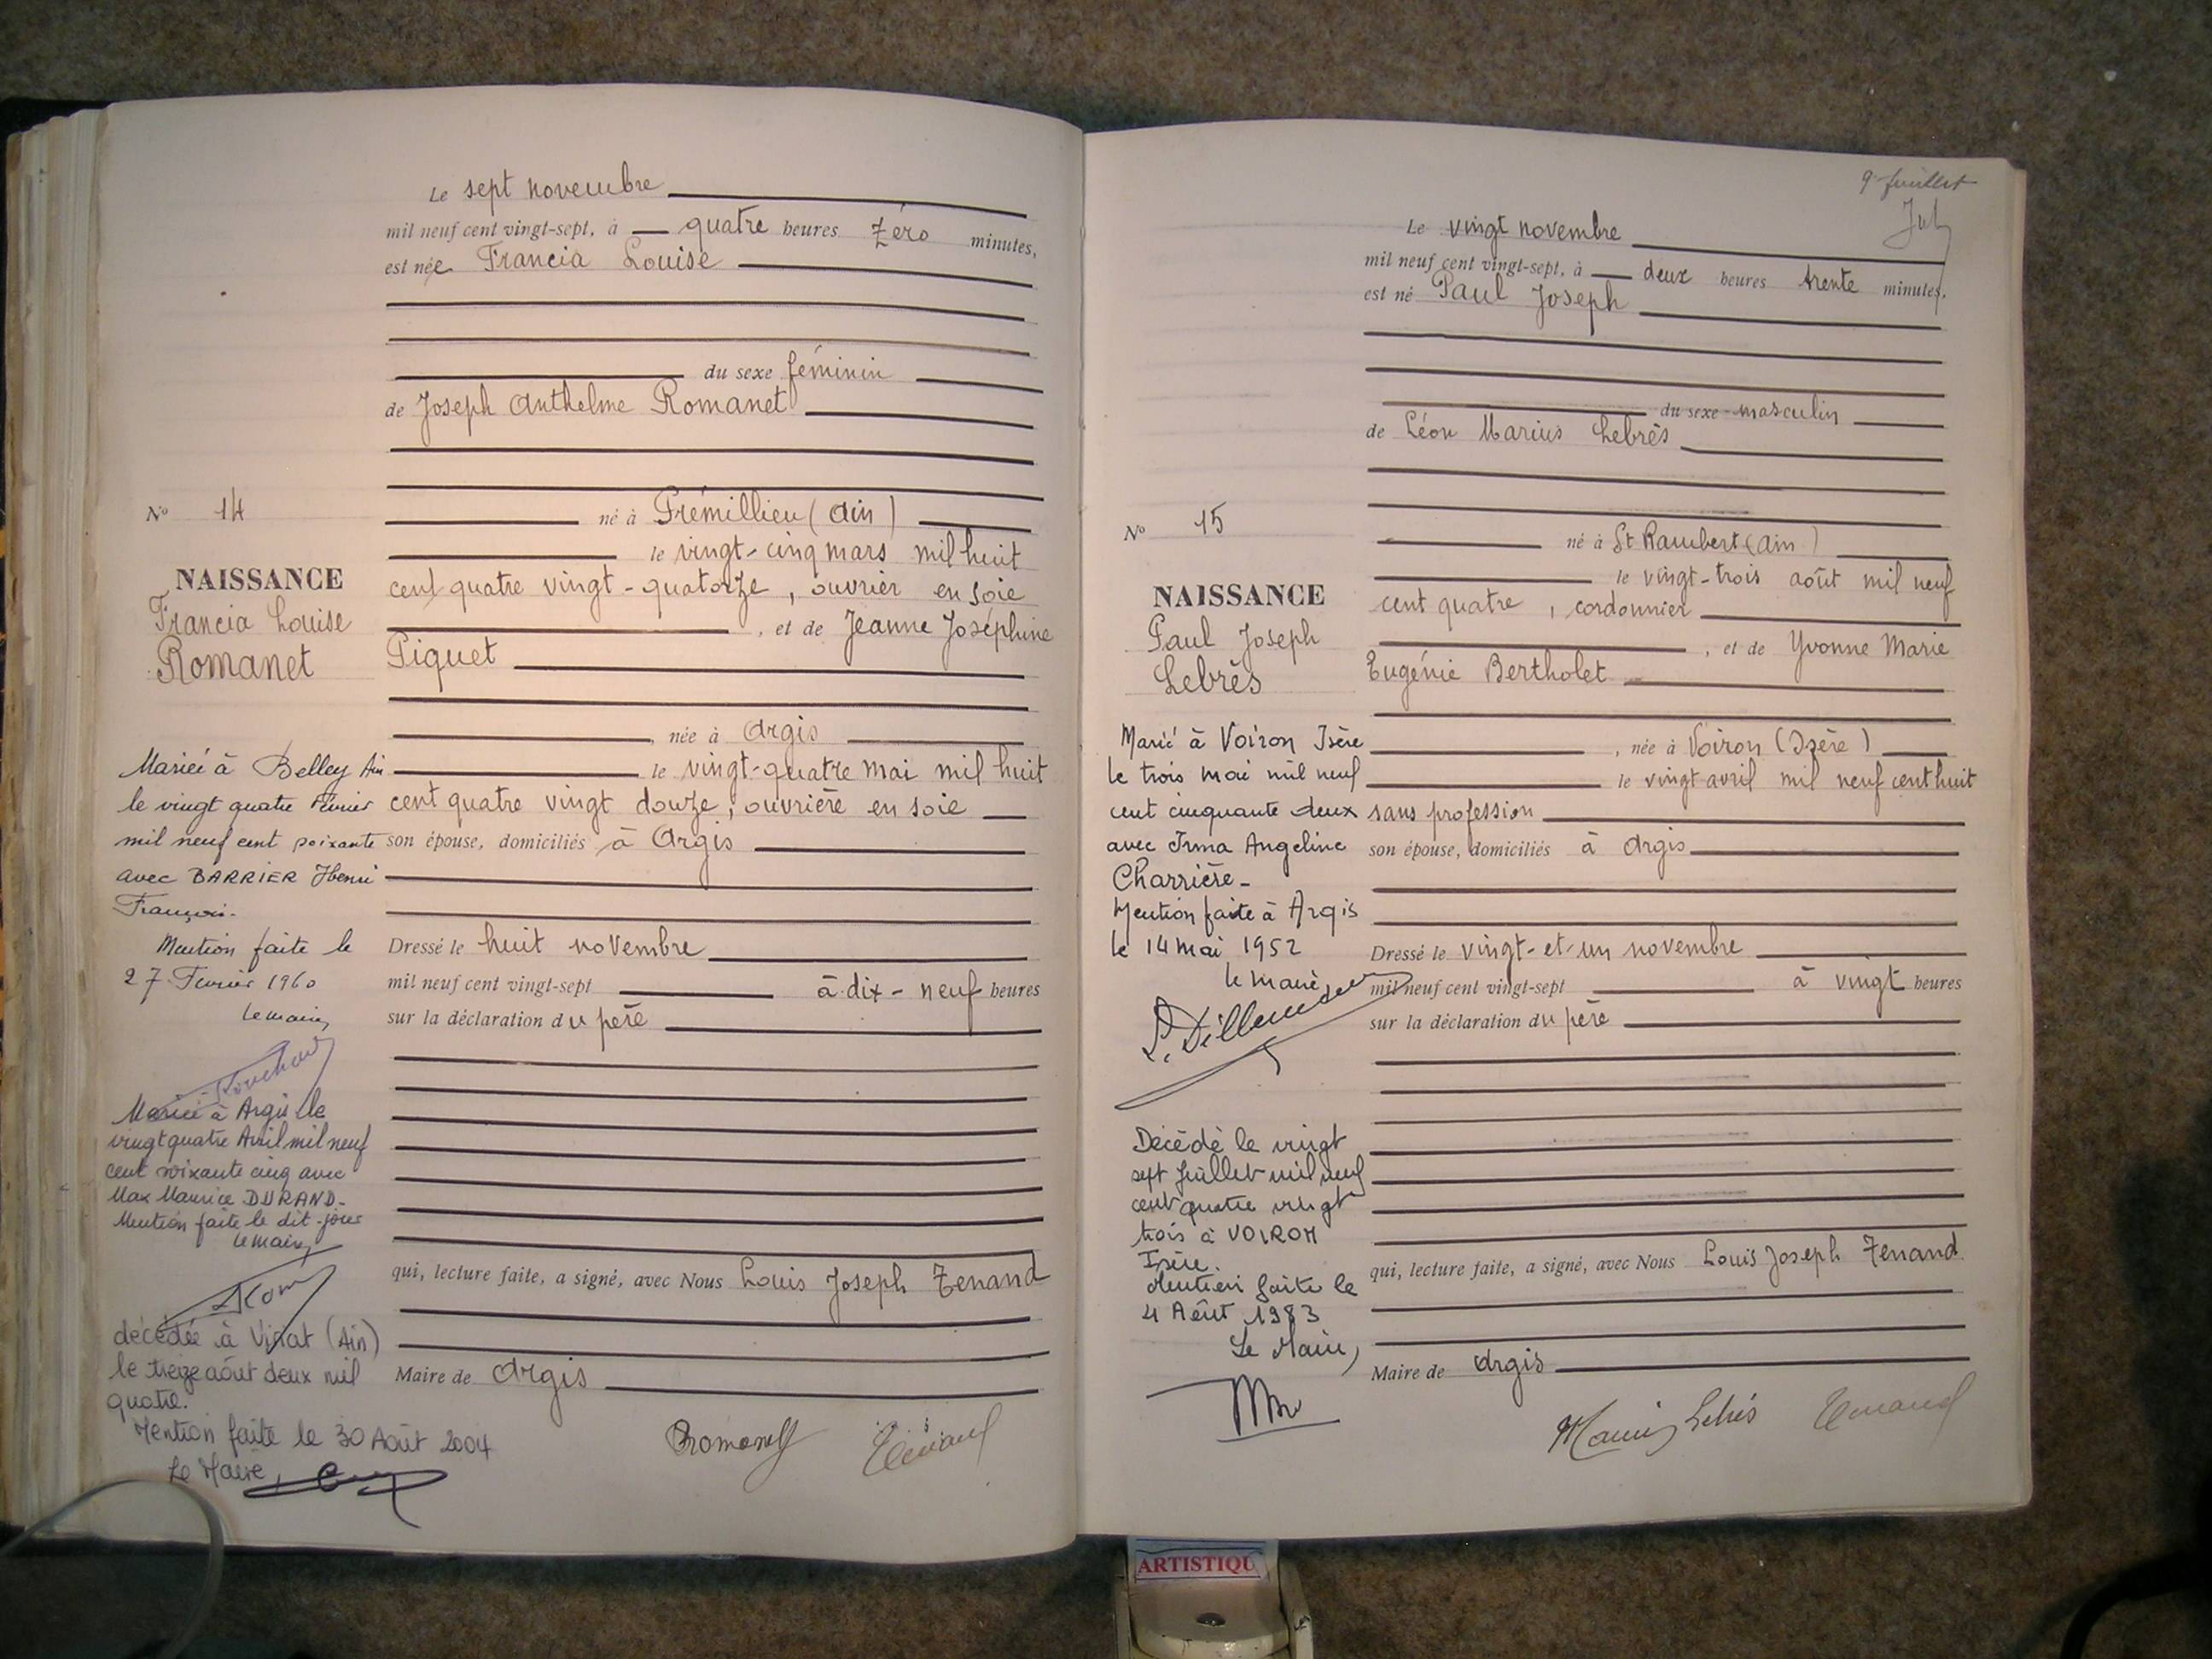 Le sept novembre
mil neuf cent vingt-sept, à quatre heures zéro minutes,
est née Francia Louise
du sexe féminin
de Joseph Anthelme Romanet
né à Prémillieu (Ain)
le vingt-cinq mars mil huit
cent quatre vingt-quatorze, ouvrier en soie
, et de Jeanne Joséphine
Piquet
, née à Argis
le vingt-quatre mai mil huit
cent quatre vingt douze, ouvrière en soie
son épouse, domiciliés à Argis
Dressé le huit novembre
mil neuf cent vingt-sept à dix-neuf heures
sur la déclaration du père
qui, lecture faite, a signé, avec Nous Louis Joseph Tenand
Maire de Argis
Romanet Tenand
N° 14
NAISSANCE
Francia Louise
Romanet
Mariée à Belley Ain
le vingt quatre Février
mil neuf cent soixante
avec BARRIER Henri
François.
Mention faite le
27 Fevrier 1960
Le maire,
Mariée à Argis le
vingt quatre Avril mil neuf
cent soixante cinq avec
Max Maurice DURAND_
Mention faite le dit jour
Le maire,
décédée à Viriat (Ain)
le treize août deux mil
quatre.
Mention faite le 30 Août 2004
Le Maire,
9 juillet
Le vingt novembre
mil neuf cent vingt-sept, à deux heures trente minutes,
est né Paul Joseph
du sexe masculin
de Léon Marius Lebrès
né à St Rambert (Ain)
le vingt-trois août mil neuf
cent quatre, cordonnier
, et de Yvonne Marie
Eugénie Bertholet
, née à Voiron (Isère)
le vingt avril mil neuf cent huit
sans profession
son épouse, domiciliés à Argis
Dressé le vingt-et-un novembre
mil neuf cent vingt-sept à vingt heures
sur la déclaration du père
qui, lecture faite, a signé, avec Nous Louis Joseph Tenand
Maire de Argis
Marius Lebrès Tenand
N° 15
NAISSANCE
Paul Joseph
Lebrès
Marié à Voiron Isère
le trois mai mil neuf
cent cinquante deux
avec Irma Angeline
Charrière_
Mention faite à Argis
le 14 mai 1952
le maire,
Décédé le vingt
sept Juillet mil neuf
cent quatre vingt
trois à VOIRON
Isère.
Mention faite le
4 Août 1983
Le Maire,
ARTISTIQU